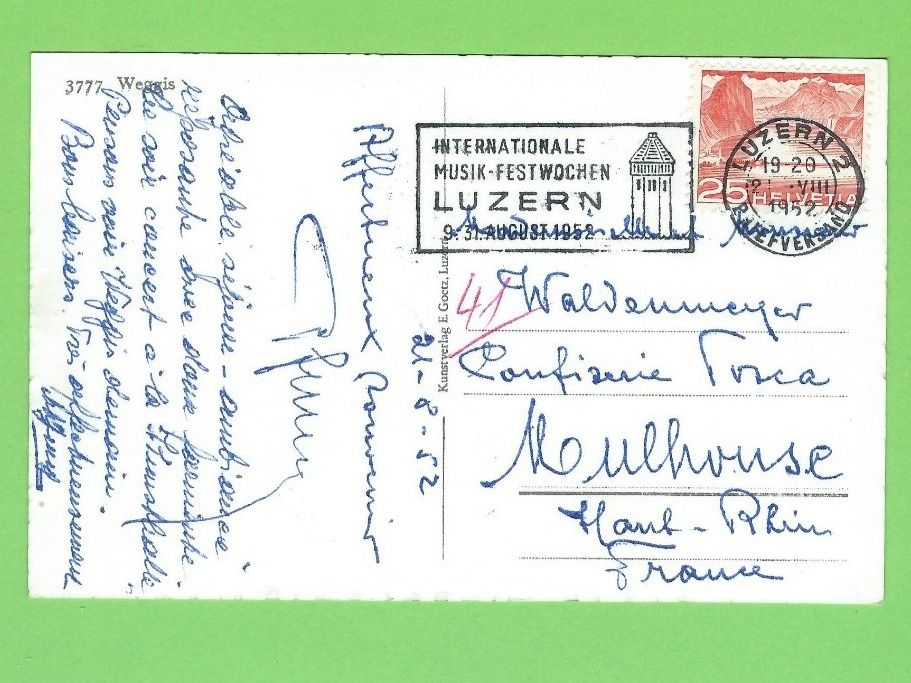 3777 Weggis
Agréable séjour - ambiance
reposante due dans laminute.
Ce soir concert à la Kunsthalle
Pensons voir Weggis demain.
Bons baisers. Très affectueusement
Affectueux souvenir
21-8-52
Kunstverlag E. Goetz, Luzern
INTERNATIONALE
MUSIK-FESTWOCHEN
LUZERN
9.-31. AUGUST 1952
25 HELVETIA
LUZERN 2
19-20
21.VIII
1952
BRIEFVERSAND
Mademoiselle Monsieur
41
Waldenmeyer
Confiserie Tosca
Mulhouse
Haut-Rhin
France